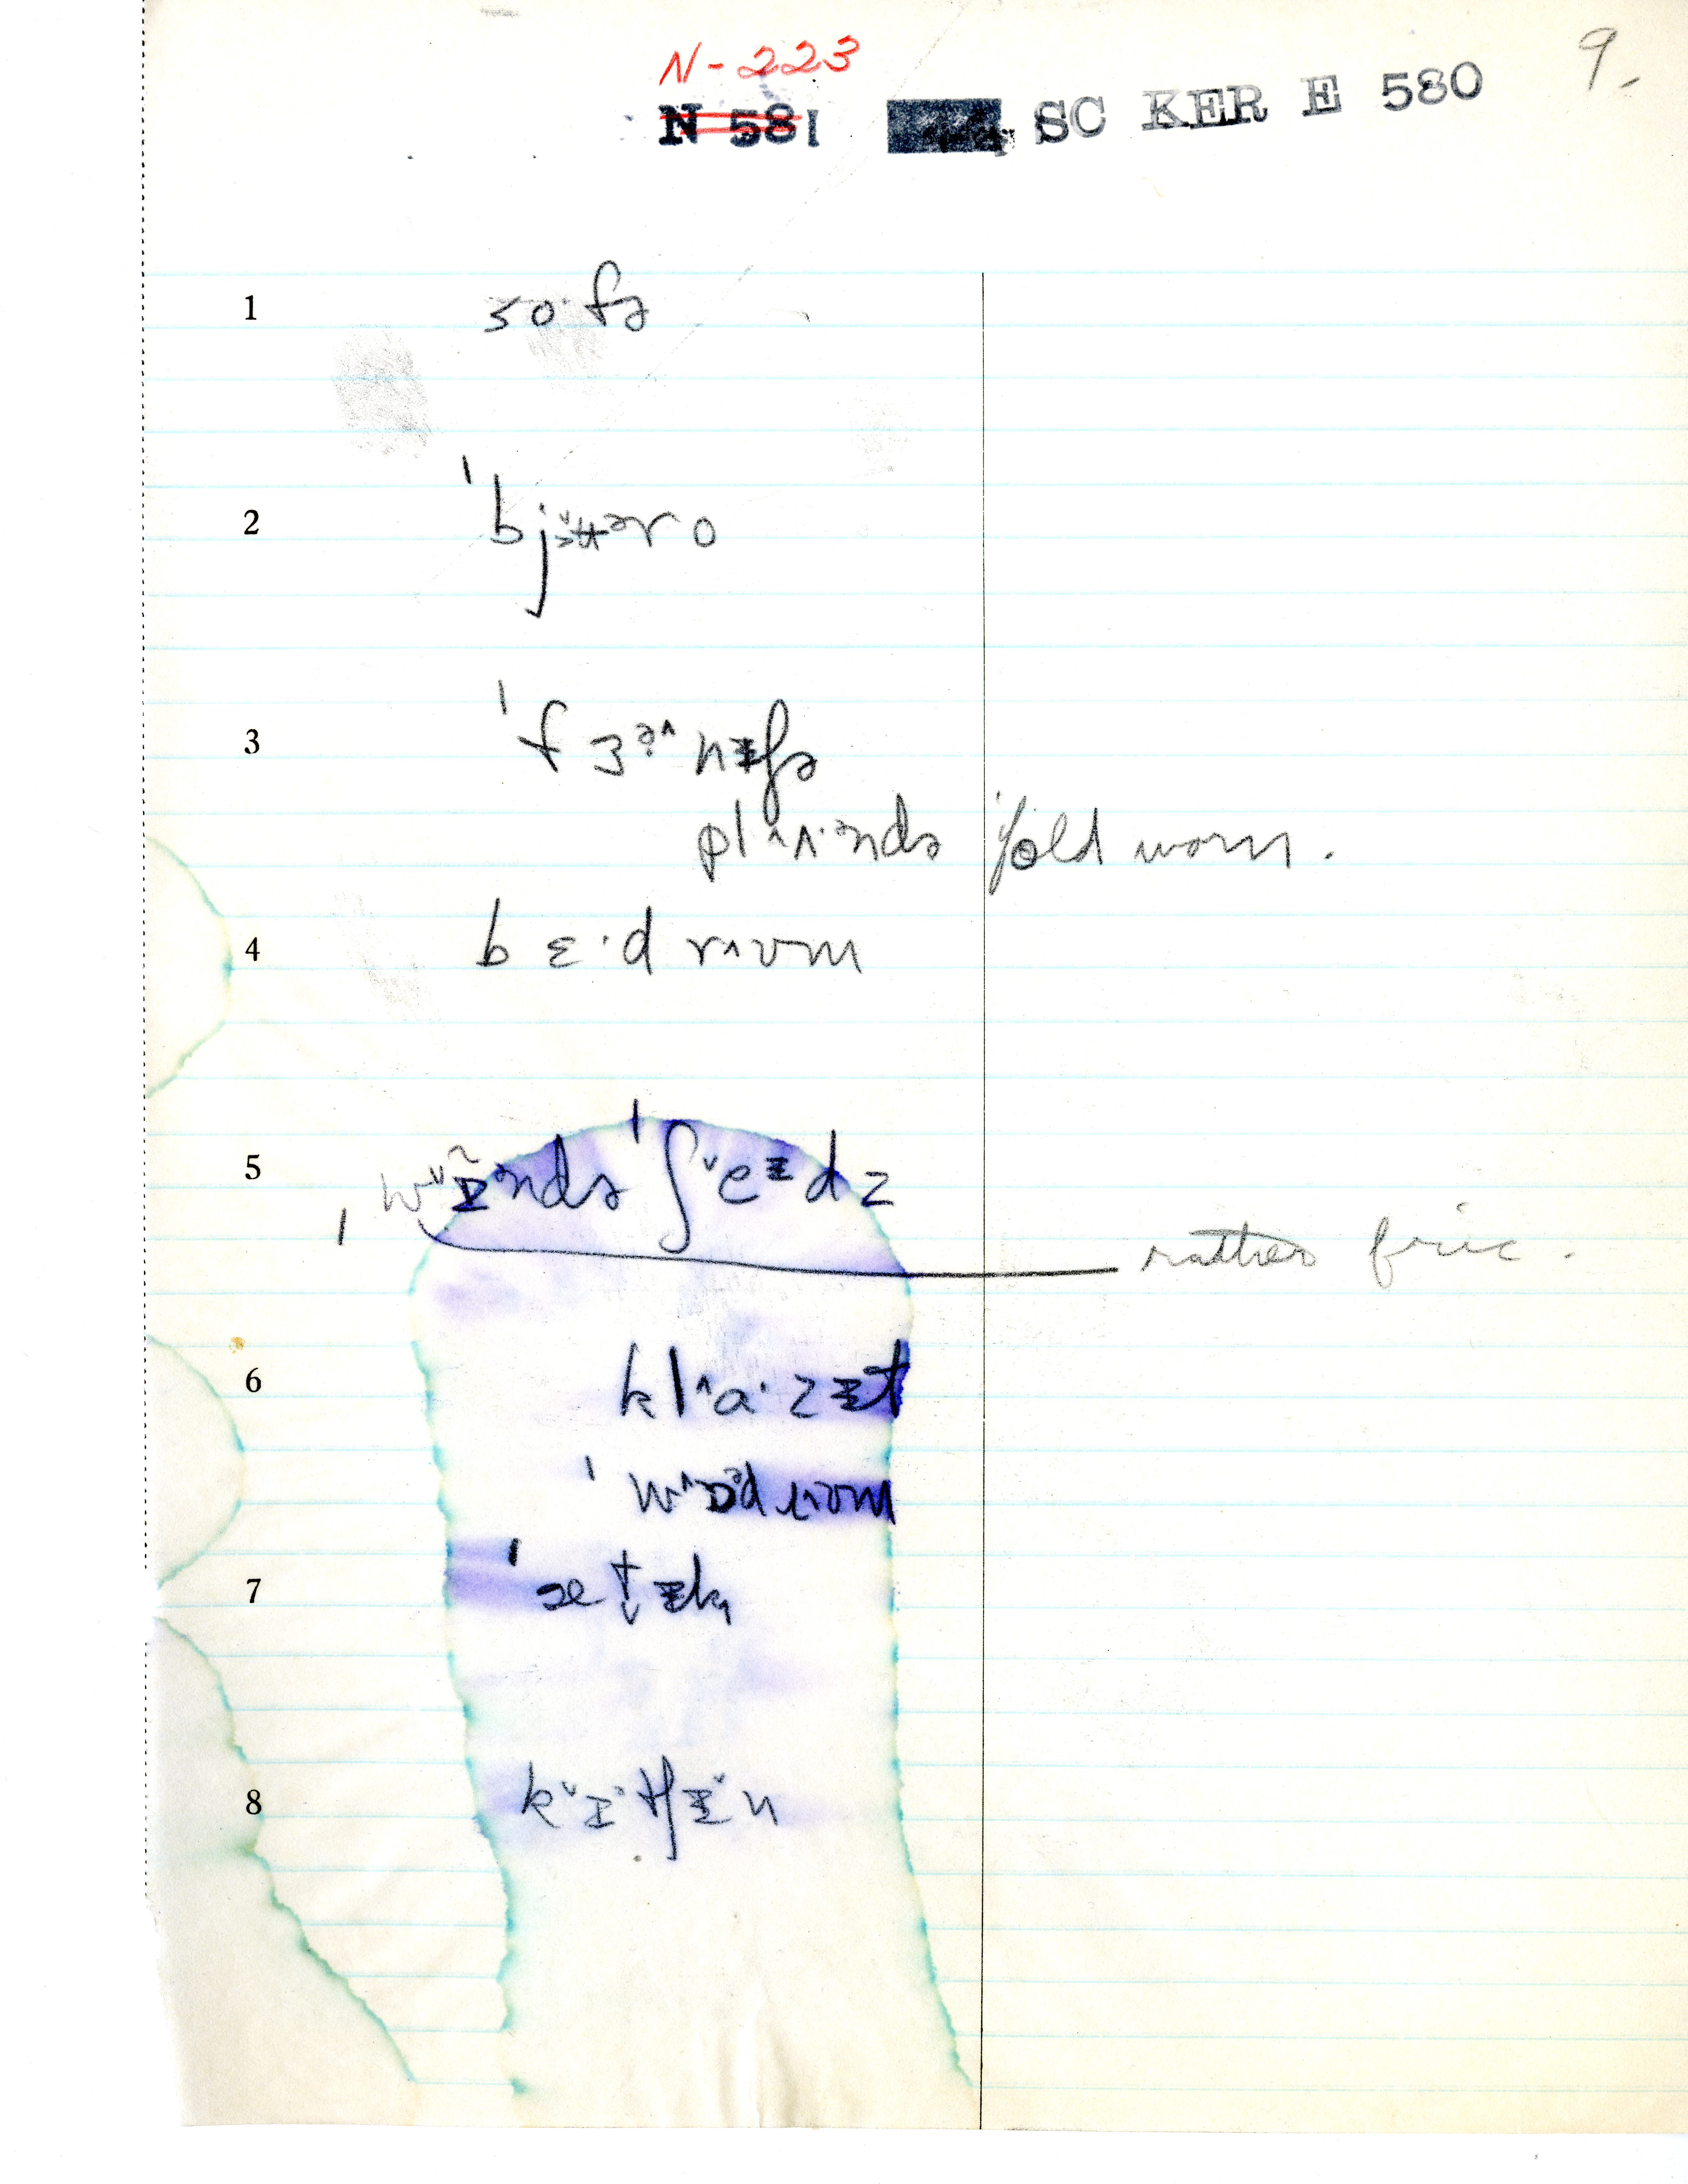 N-223
N 581 SC KER E 580 9.
1 so·fə
2 ˈbjʉəro
3 ˈfɜənɪʃə
plʌ·ndə ˈold worn.
4 bɛ·d rʌʊm
5 wɪəndə ˈʃeɪdz
rather fric.
6 klɑ·zɪt
ˈwɔədrʌʊm
7 ˈætɪk
8 kɪtʃɪn